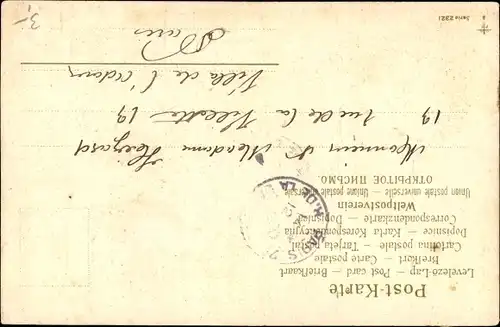 Post-Karte
Levelező-Lap — Post card — Briefkaart
Brefkort — Carte postale
Cartolina postale — Tarjeta postal
Dopisnice — Karta Korespondencyjna
Correspondenzkarte — Dopisnica
Weltpostverein
Union postale universelle — Unione postale universale
ОТКРЫТОЕ ПИСЬМО.
PARIS
R. DE LA
Monsieur et Madame
19 rue de la Villette 19
Villa de l'
Paris
Serie 2321
3,-